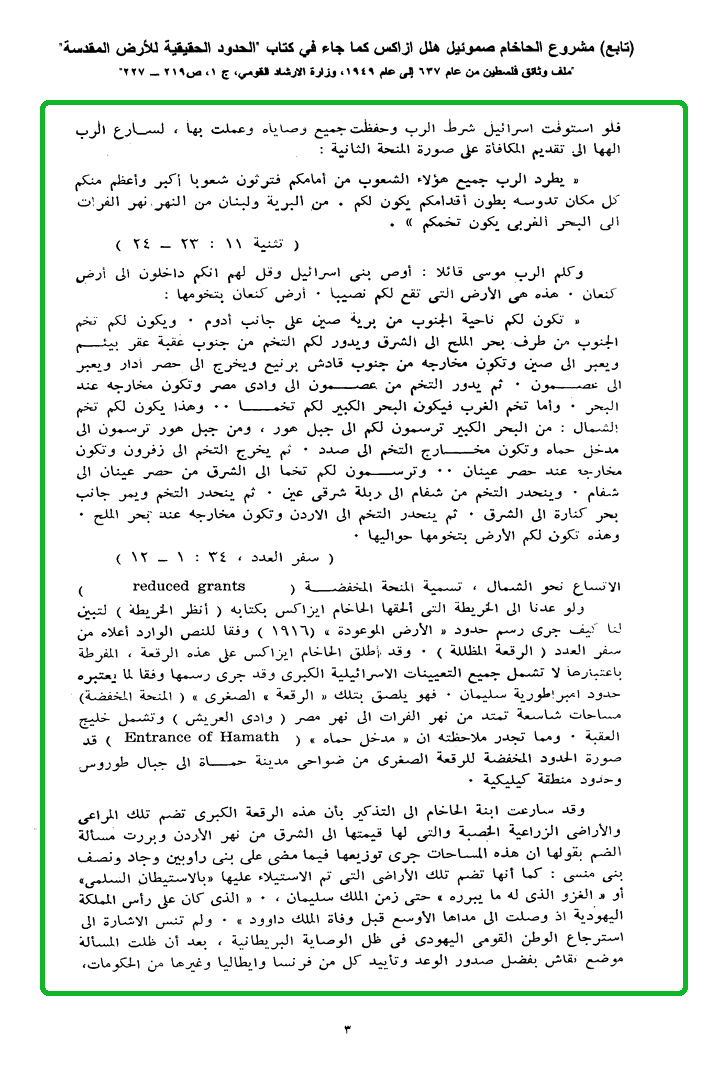 (تابع) مشروع الحاخام صموئيل هلل ازاكس كما جاء في كتاب "الحدود الحقيقية للأرض المقدسة"
"ملف وثائق فلسطين من عام ٦٣٧ إلى عام ١٩٤٩، وزارة الارشاد القومي، ج ١، ص٢١٩ – ٢٢٧"
فلو استوفت اسرائيل شرط الرب وحفظت جميع وصاياه وعملت بها ، لسارع الرب
الهها الى تقديم المكافأة على صورة المنحة الثانية :
« يطرد الرب جميع هؤلاء الشعوب من أمامكم فترثون شعوبا أكبر وأعظم منكم
كل مكان تدوسه بطون أقدامكم يكون لكم . من البرية ولبنان من النهر نهر الفرات
الى البحر الغربى يكون تخمكم » .
( تثنية ١١ : ٢٣ – ٢٤ )
وكلم الرب موسى قائلا : أوص بنى اسرائيل وقل لهم انكم داخلون الى أرض
كنعان ٠ هذه هى الأرض التى تقع لكم نصيبا ٠ أرض كنعان بتخومها :
« تكون لكم ناحية الجنوب من برية صين على جانب أدوم ٠ ويكون لكم تخم
الجنوب من طرف بحر الملح الى الشرق ويدور لكم التخم من جنوب عقبة عقر بيــم
ويعبر الى صين وتكون مخارجه من جنوب قادش برنيع ويخرج الى حصر أدار ويعبر
الى عصــمون ٠ ثم يدور التخم من عصــمون الى وادى مصر وتكون مخارجه عند
البحر ٠ وأما تخم الغرب فيكون البحر الكبير لكم تخمــا ٠٠ وهذا يكون لكم تخم
الشمال : من البحر الكبير ترسمون لكم الى جبل هور ، ومن جبل هور ترسمون الى
مدخل حماه وتكون مخــارج التخم الى صدد ٠ ثم يخرج التخم الى زفرون وتكون
مخارجه عند حصر عينان ٠٠ وترســمون لكم تخما الى الشرق من حصر عينان الى
شفام ٠ وينحدر التخم من شفام الى ربلة شرقى عين ٠ ثم ينحدر التخم ويمر جانب
بحر كنارة الى الشرق ٠ ثم ينحدر التخم الى الاردن وتكون مخارجه عند بحر الملح ٠
وهذه تكون لكم الأرض بتخومها حواليها ٠
( سفر العدد ، ٣٤ : ١ – ١٢ )
الاتساع نحو الشمال ، تسمية المنحة المخفضــة ( reduced grants )
ولو عدنا الى الخريطة التى ألحقها الحاخام ايزاكس بكتابه ( أنظر الخريطة ) لتبين
لنا كيف جرى رسم حدود « الأرض الموعودة » (١٩١٦ ) وفقا للنص الوارد أعلاه من
سفر العدد ( الرقعة المظللة ) ٠ وقد أطلق الحاخام ايزاكس على هذه الرقعة ، المفرطة
باعتبارها لا تشمل جميع التعيينات الاسرائيلية الكبرى وقد جرى رسمها وفقا لما يعتبره
حدود امبراطورية سليمان ٠ فهو يلصق بتلك « الرقعة » الصغرى » (المنحة المخفضة)
مساحات شاسعة تمتد من نهر الفرات الى نهر مصر ( وادى العريش ) وتشمل خليج
العقبة ٠ ومما تجدر ملاحظته ان « مدخل حماه » ( Entrance of Hamath ) قد
صورة الحدود المخفضة للرقعة الصغرى من ضواحى مدينة حمــاة الى جبال طوروس
وحدود منطقة كيليكية ٠
وقد سارعت ابنة الحاخام الى التذكير بأن هذه الرقعة الكبرى تضم تلك المراعى
والأراضى الزراعية الخصبة والتى لها قيمتها الى الشرق من نهر الأردن وبررت مسألة
الضم بقولها ان هذه المساحات جرى توزيعها فيما مضى على بنى رأوبين وجاد ونصف
بنى منسى : كما أنها تضم تلك الأراضى التى تم الاستيلاء عليها «بالاستيطان السلمى»
أو « الغزو الذى له ما يبرره » حتى زمن الملك سليمان ، ٠ « الذى كان على رأس المملكة
اليهودية اذ وصلت الى مداها الأوسع قبل وفاة الملك داوود » ٠ ولم تنس الاشارة الى
استرجاع الوطن القومى اليهودى فى ظل الوصاية البريطانية ، بعد أن ظلت المسألة
موضع نقاش بفضل صدور الوعد وتأييد كل من فرنسا وايطاليا وغيرها من الحكومات،
٣